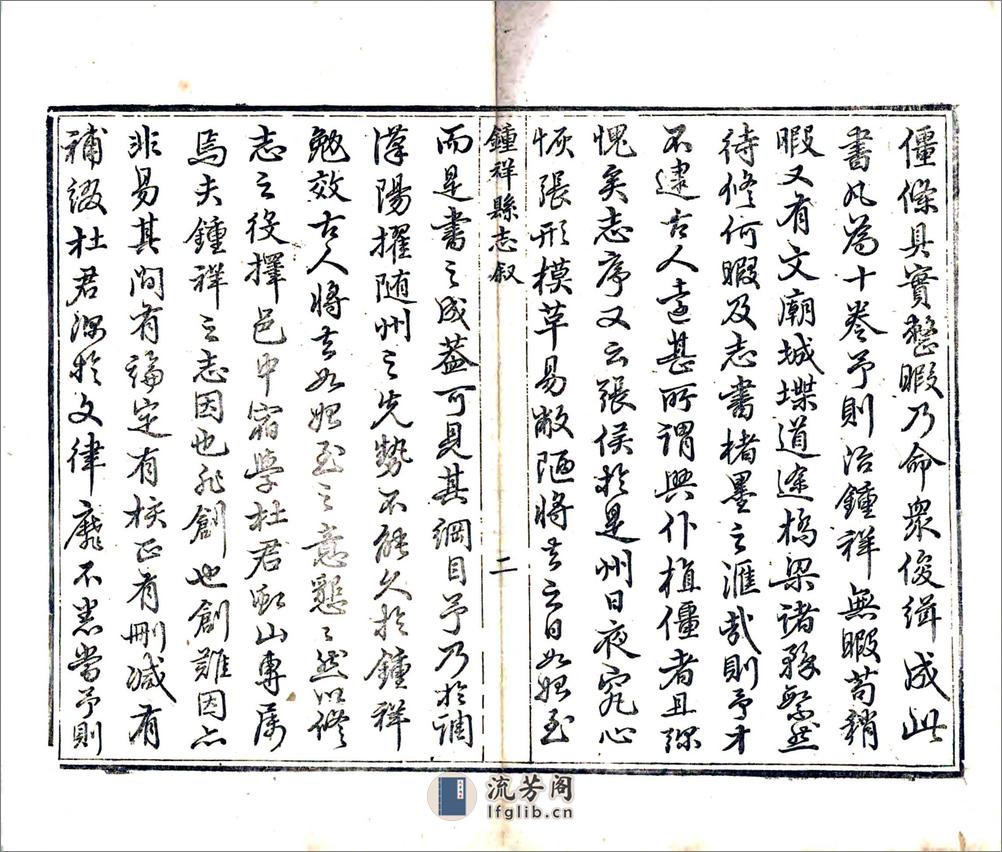 僵條具實整暇乃命衆俊緝成此
書凡為十卷予則治鍾祥無暇苟稍
暇又有文廟城堞道途橋梁諸務繁然
待修何暇及志書楮墨之滙哉則予才
不逮古人遠甚所謂興仆植僵者且弥
愧矣志序又云張侯於是州日夜究心
恢張形模草易敝陋將去之日如始至
鍾祥縣志叙
二
而是書之成蓋可見其綱目予乃於調
漢陽擢随州之先勢不能久於鍾祥
勉效古人將去如始至之意懇懇然以修
志之役擇邑中宿學杜君山專属
焉夫鍾祥之志因也非創也創難因亦
非易其間有論定有核正有刪減有
補綴杜君深於文律靡不悉當予則
流芳阁
lfglib.cn